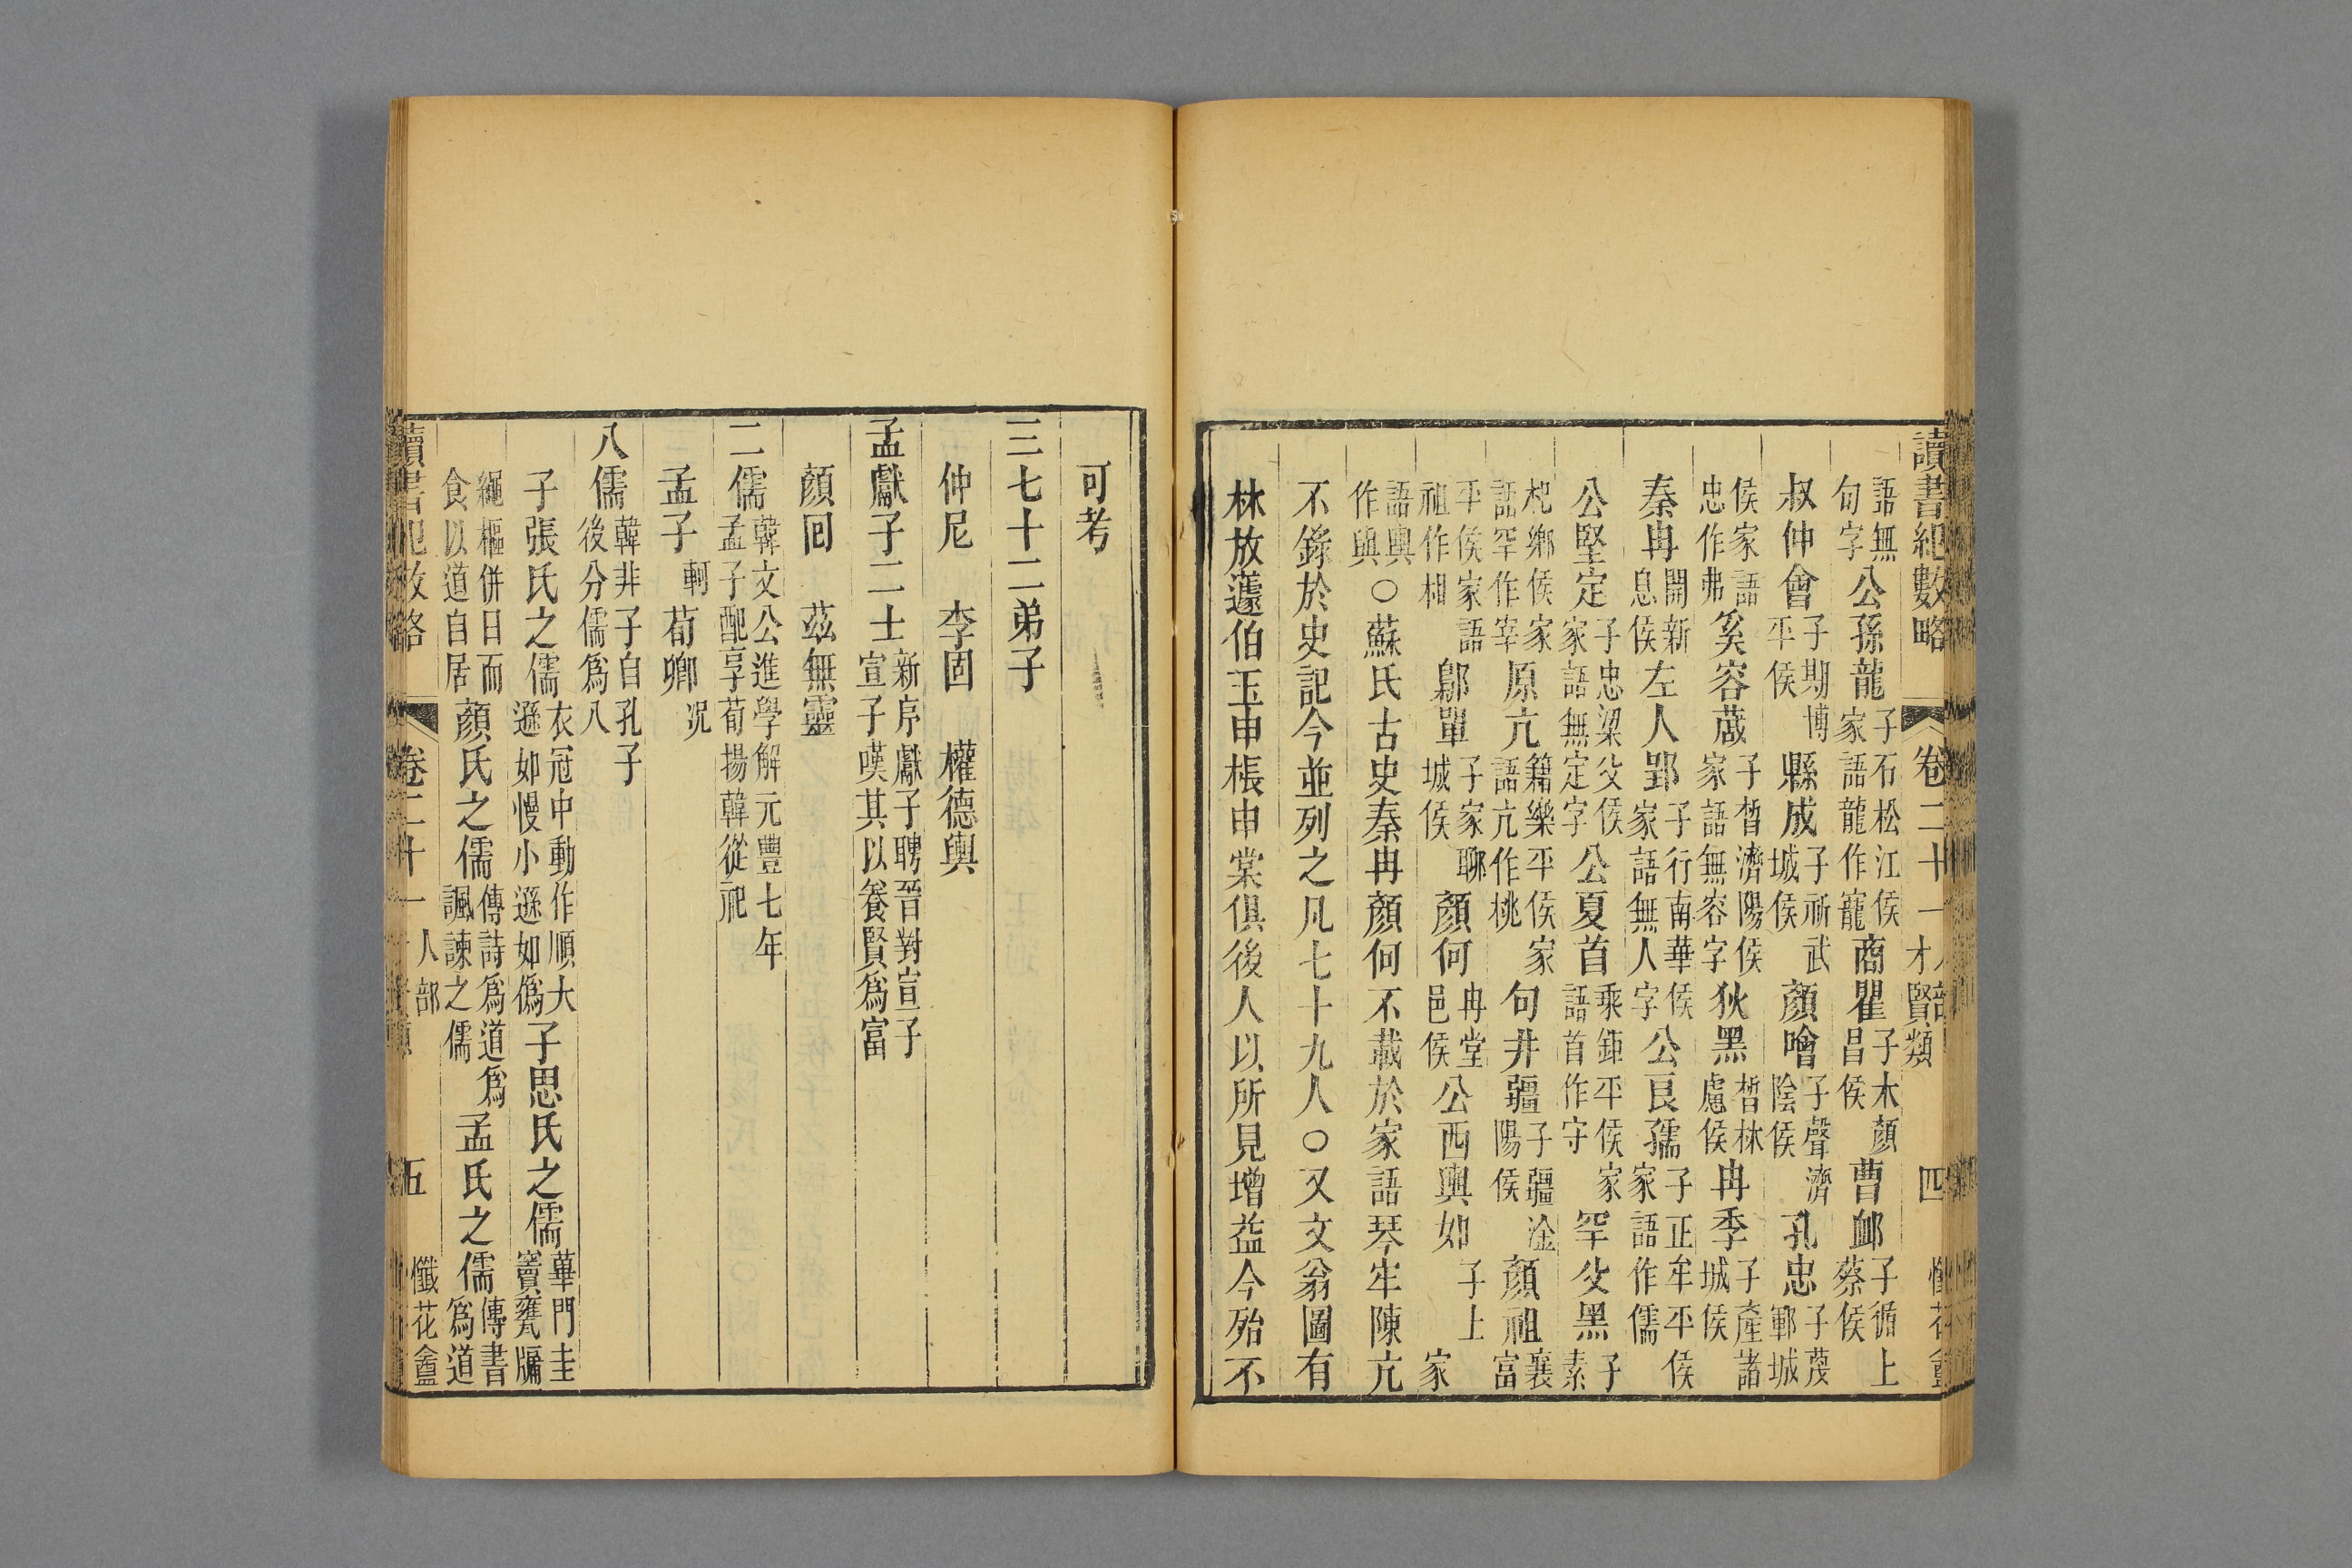 讀書紀數略 卷二十一 人部 才賢類 四 懺花盦
語無句字 公孫龍 子石松江侯家語龍作寵 商瞿 子木顏昌侯 曹䘏 子循上蔡侯
叔仲會 子期博平侯 縣成 子祈武城侯 顏噲 子聲濟陰侯 孔忠 子蔑鄆城
侯家語忠作弗 奚容蒧 子皙濟陽侯家語無容字 狄黑 皙林慮侯 冉季 子產諸城侯
秦冉 開新息侯 左人郢 子行南華侯家語無人字 公良孺 子正牟平侯家語作儒
公堅定 子忠梁父侯家語無定字 公夏首 乘鉅平侯家語首作守 罕父黑 子素
杞鄉侯家語罕作宰 原亢 籍樂平侯家語亢作桃 句井疆 子疆淦陽侯 顏祖 襄富
平侯家語祖作相 鄡單 子家聊城侯 顏何 冉堂邑侯 公西輿如 子上 家
語輿作與 ○蘇氏古史秦冉顏何不載於家語琴牢陳亢
不錄於史記今並列之凡七十九人○又文翁圖有
林放蘧伯玉申棖申棠俱後人以所見增益今殆不
可考
三七十二弟子
仲尼 李固 權德輿
孟獻子二士 新序獻子聘晉對宣子宣子嘆其以養賢爲富
顏回 茲無靈
二儒 韓文公進學解元豐七年孟子配享荀揚韓從祀
孟子 軻 荀卿 况
八儒 韓非子自孔子後分儒爲八
子張氏之儒 衣冠中動作順大遜如慢小遜如僞 子思氏之儒 蓽門圭竇甕牖
繩樞併日而食以道自居 顏氏之儒 傳詩爲道爲諷諫之儒 孟氏之儒 傳書爲道
讀書紀數略 卷二十一 人部 五 懺花盦